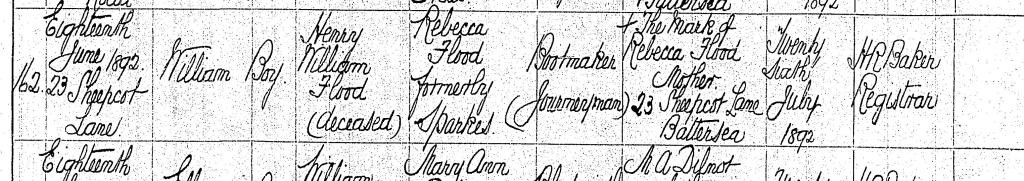 1892
Eighteenth
June 1892.
162 23 Sheepcot
Lane
William
Boy.
Henry
William
Flood
(deceased)
Rebecca
Flood
formerly
Sparkes.
Bootmaker
(Journeyman)
+ The Mark of
Rebecca Flood
Mother.
23 Sheepcot Lane
Battersea
Twenty
Sixth
July
1892
H R Baker
Registrar
Eighteenth
William
Mary Ann
M A Dilnot